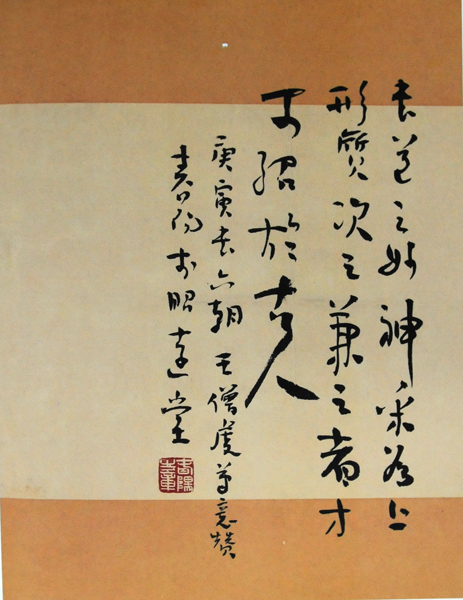 書道之妙神采為上
形質次之兼之者方
可紹於古人
庚寅書六朝王僧虔筆意贊
於昭達堂